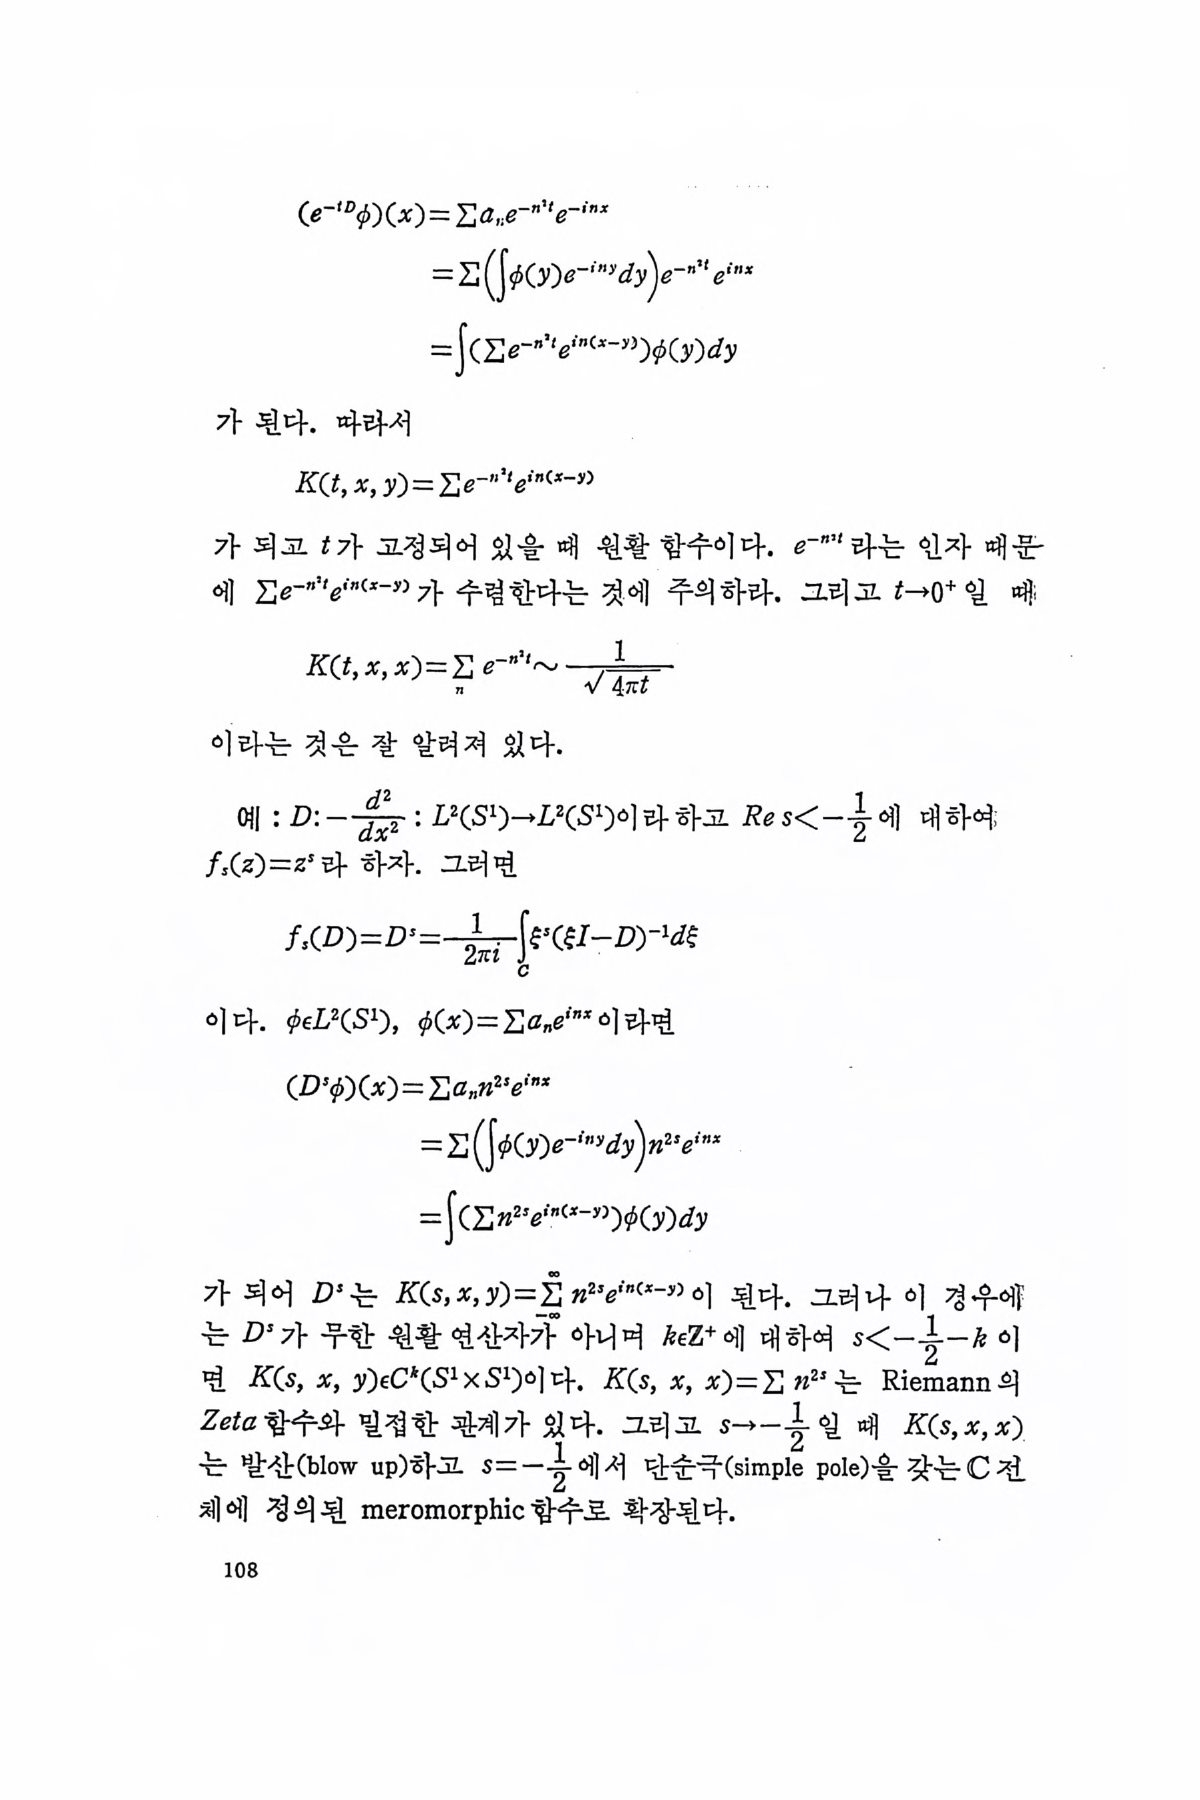 (e^{-tD}φ)(x)=∑aₙe^{-n²t}e^{-inx}
=∑(∫φ(y)e^{-iny}dy)e^{-n²t}e^{inx}
=∫(∑e^{-n²t}e^{in(x-y)})φ(y)dy
가 된다. 따라서
K(t, x, y)=∑e^{-n²t}e^{in(x-y)}
가 되고 t가 고정되어 있을 때 원활 함수이다. e^{-n²t}라는 인자 때문
에 ∑e^{-n²t}e^{in(x-y)}가 수렴한다는 것에 주의하라. 그리고 t→0⁺일 때
K(t, x, x)=∑_n e^{-n²t}∼\frac{1}{√4πt}
이라는 것은 잘 알려져 있다.
예 : D: -\frac{d²}{dx²} : L²(S¹)→L²(S¹)이라 하고 Re s<-\frac{1}{2}에 대하여
f_s(z)=z^s라 하자. 그러면
f_s(D)=D^s=\frac{1}{2πi}∫_C ξ^s(ξI-D)^{-1}dξ
이다. φϵL²(S¹), φ(x)=∑aₙe^{inx}이라면
(D^sφ)(x)=∑aₙn^{2s}e^{inx}
=∑(∫φ(y)e^{-iny}dy)n^{2s}e^{inx}
=∫(∑n^{2s}e^{in(x-y)})φ(y)dy
가 되어 D^s는 K(s, x, y)=∑_{-∞}^{∞} n^{2s}e^{in(x-y)}이 된다. 그러나 이 경우에
는 D^s가 무한 원활 연산자가 아니며 kϵℤ⁺에 대하여 s<-\frac{1}{2}-k이
면 K(s, x, y)ϵC^k(S¹×S¹)이다. K(s, x, x)=∑ n^{2s}는 Riemann의
Zeta함수와 밀접한 관계가 있다. 그리고 s→-\frac{1}{2}일 때 K(s, x, x)
는 발산(blow up)하고 s=-\frac{1}{2}에서 단순극(simple pole)을 갖는 ℂ 전
체에 정의된 meromorphic함수로 확장된다.
108